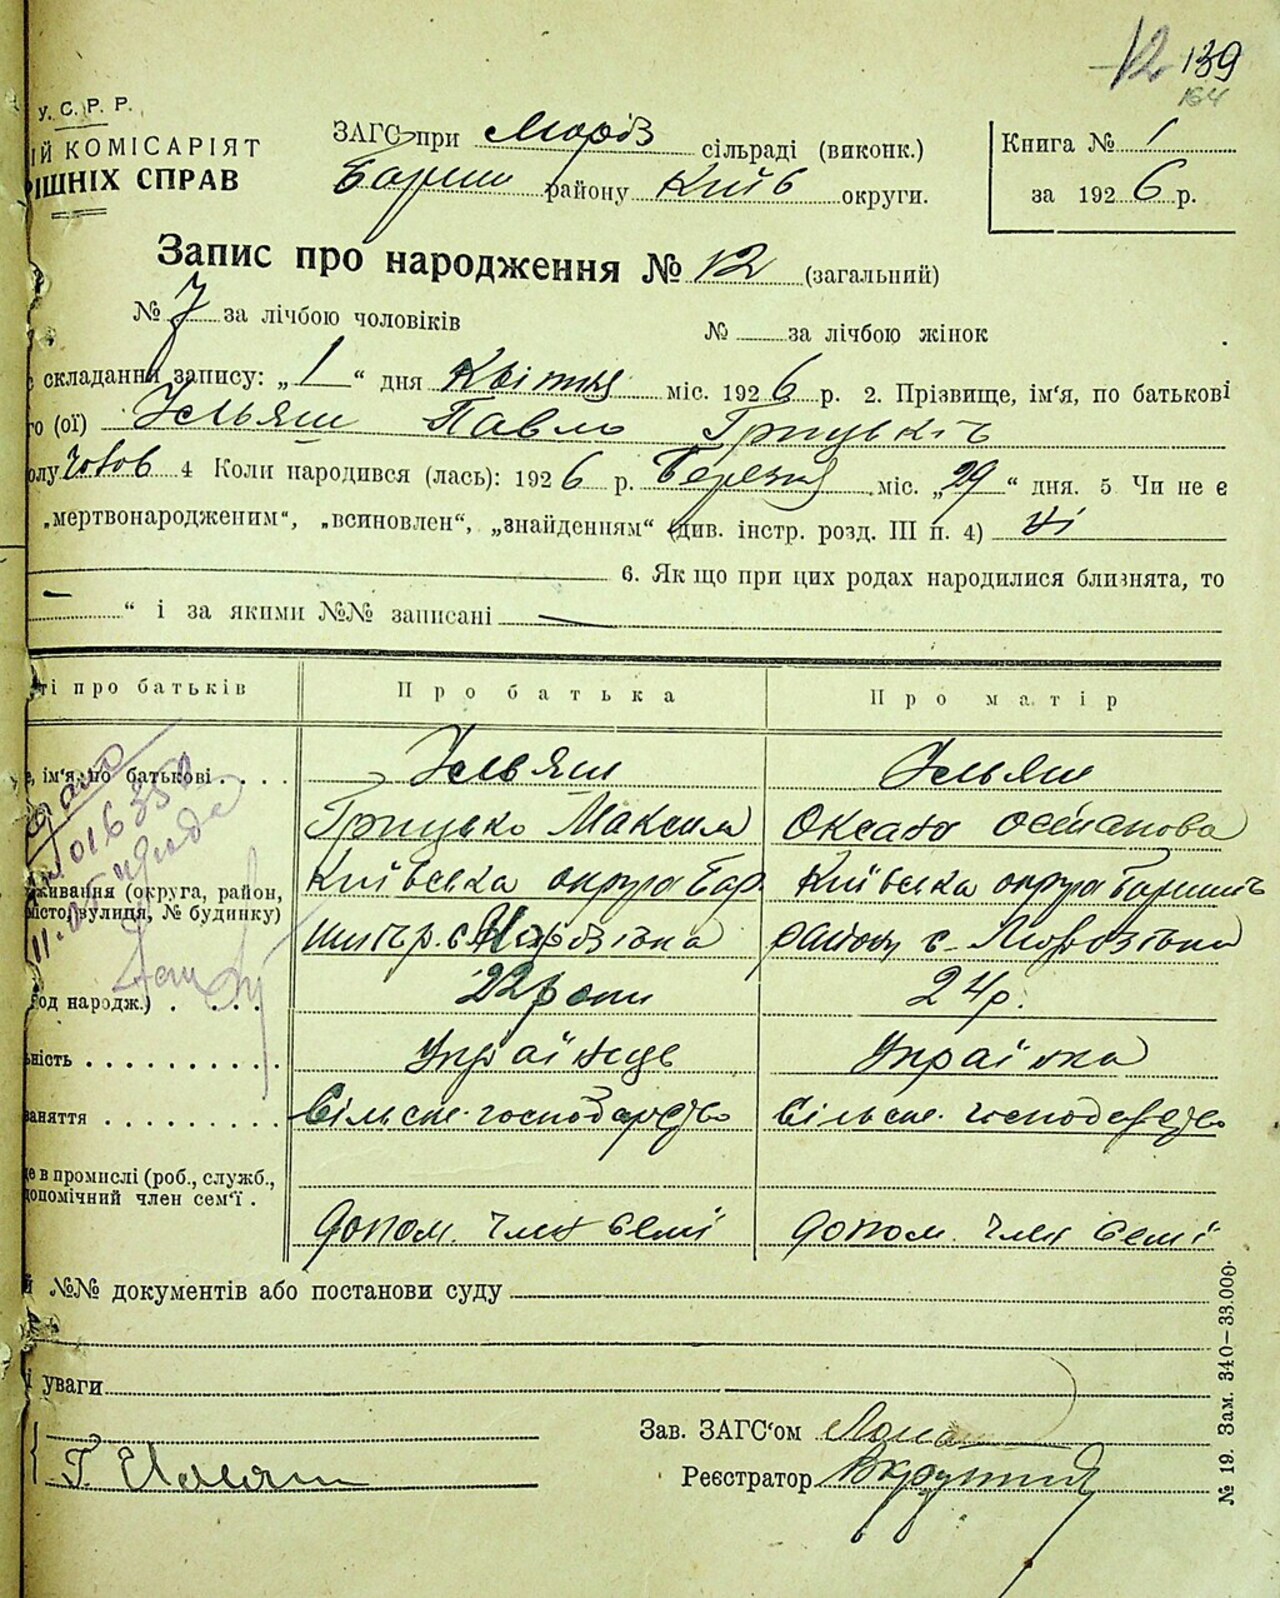 12 139
164
У. С. Р. Р.
ІЙ КОМІСАРІЯТ
РІШНІХ СПРАВ
ЗАГС при Мороз сільраді (виконк.)
Бориш району Київ округи.
Книга № 1
за 1926 р.
Запис про народження № 12 (загальний)
№ 7 за лічбою чоловіків
№ за лічбою жінок
складання запису: „1“ дня Квітня міс. 1926 р. 2. Прізвище, ім'я, по батькові
го (ої) Ільяш Павло Грицьків
олу чолов 4 Коли народився (лась): 1926 р. Березня міс. „29“ дня. 5 Чи не є
„мертвонародженим“, „всиновлен“, „знайденням“ (див. інстр. розд. III п. 4) ні
6. Як що при цих родах народилися близнята, то
“ і за якими №№ записані
ті про батьків
Про батька
Про матір
е, ім'я, по батькові
Ільяш
Ільяш
Грицько Максим
Оксана Остапова
живання (округа, район, місто, вулиця, № будинку)
Київська округа Бар
Київська округа Бориш
район с Морозівка
од народж.)
22 роки
24 р.
ьність
Українець
Українка
заняття
Сільське господарство
Сільськ. господарство
е в промислі (роб., служб.,
допомічний член сем'ї
допом. член семї
допом. член семї
й №№ документів або постанови суду
і уваги
Зав. ЗАГС'ом
Г. Ільяш
Реєстратор
№ 19. Зам. 340—33.000.